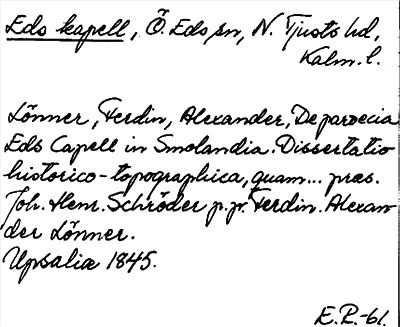 Eds kapell, Ö. Eds sn, N. Tjusts hd,
Kalm. l.
Lönner, Ferdin, Alexander, De paroecia
Eds Capell in Smolandia. Dissertatio
historico-topographica, quam... præs.
Joh. Henr. Schröder p.p. Ferdin. Alexan-
der Lönner.
Upsaliæ 1845.
E.P.-61.